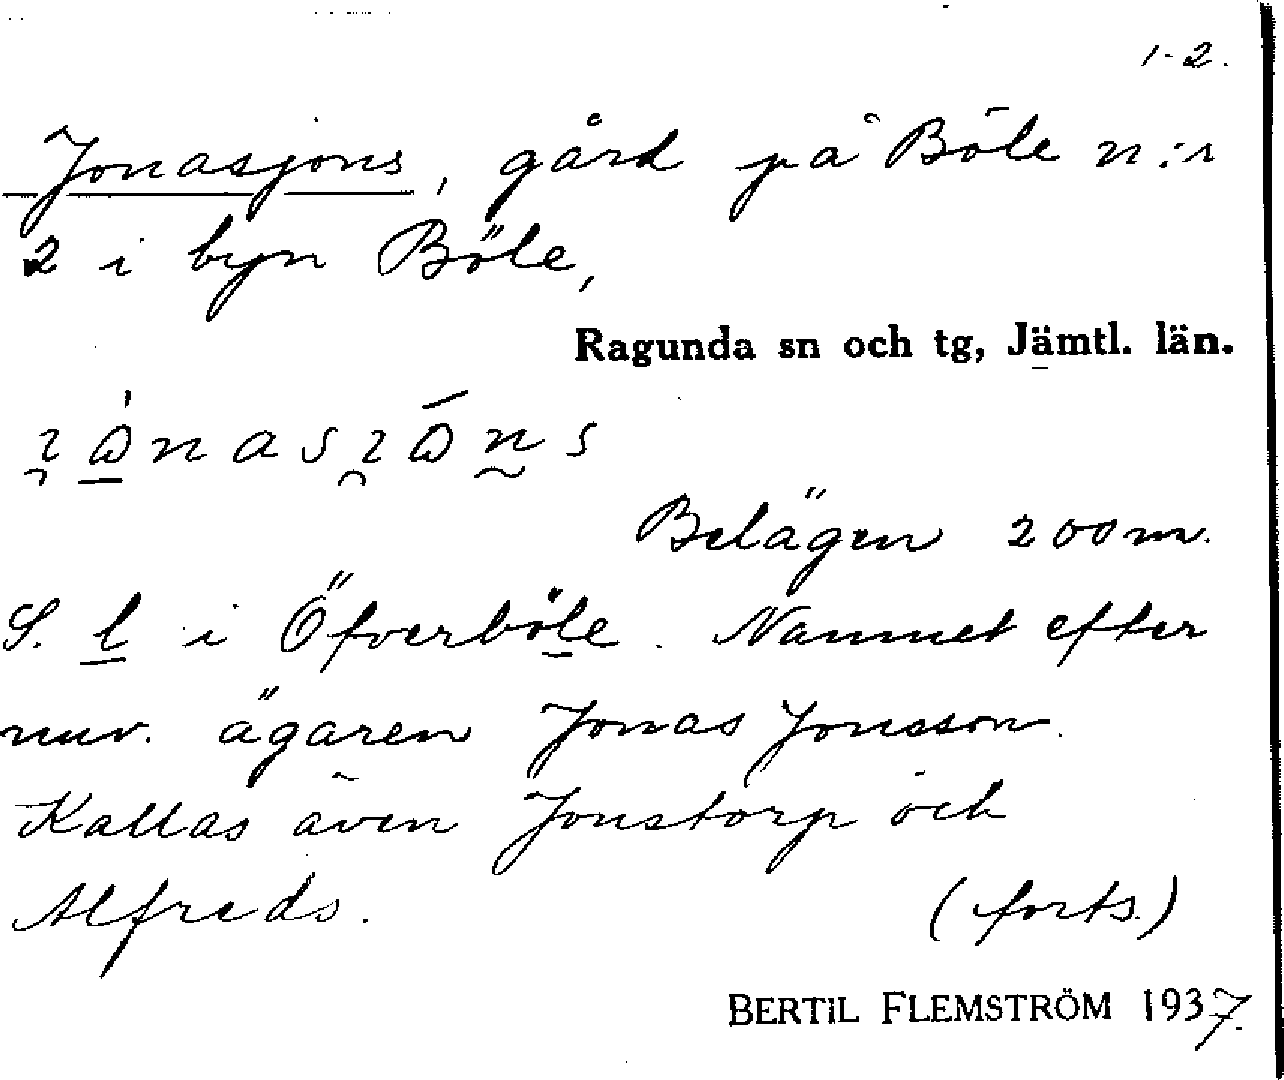 1-2.
Jonasjons, gård på Böle n:r
2 i byn Böle,
Ragunda sn och tg, Jämtl. län.
Belägen 200 m.
S. l i Öfverböle. Namnet efter
nuv. ägaren Jonas Jonsson.
Kallas även Jonstorp och
Alfreds. (forts.)
BERTIL FLEMSTRÖM 1937.